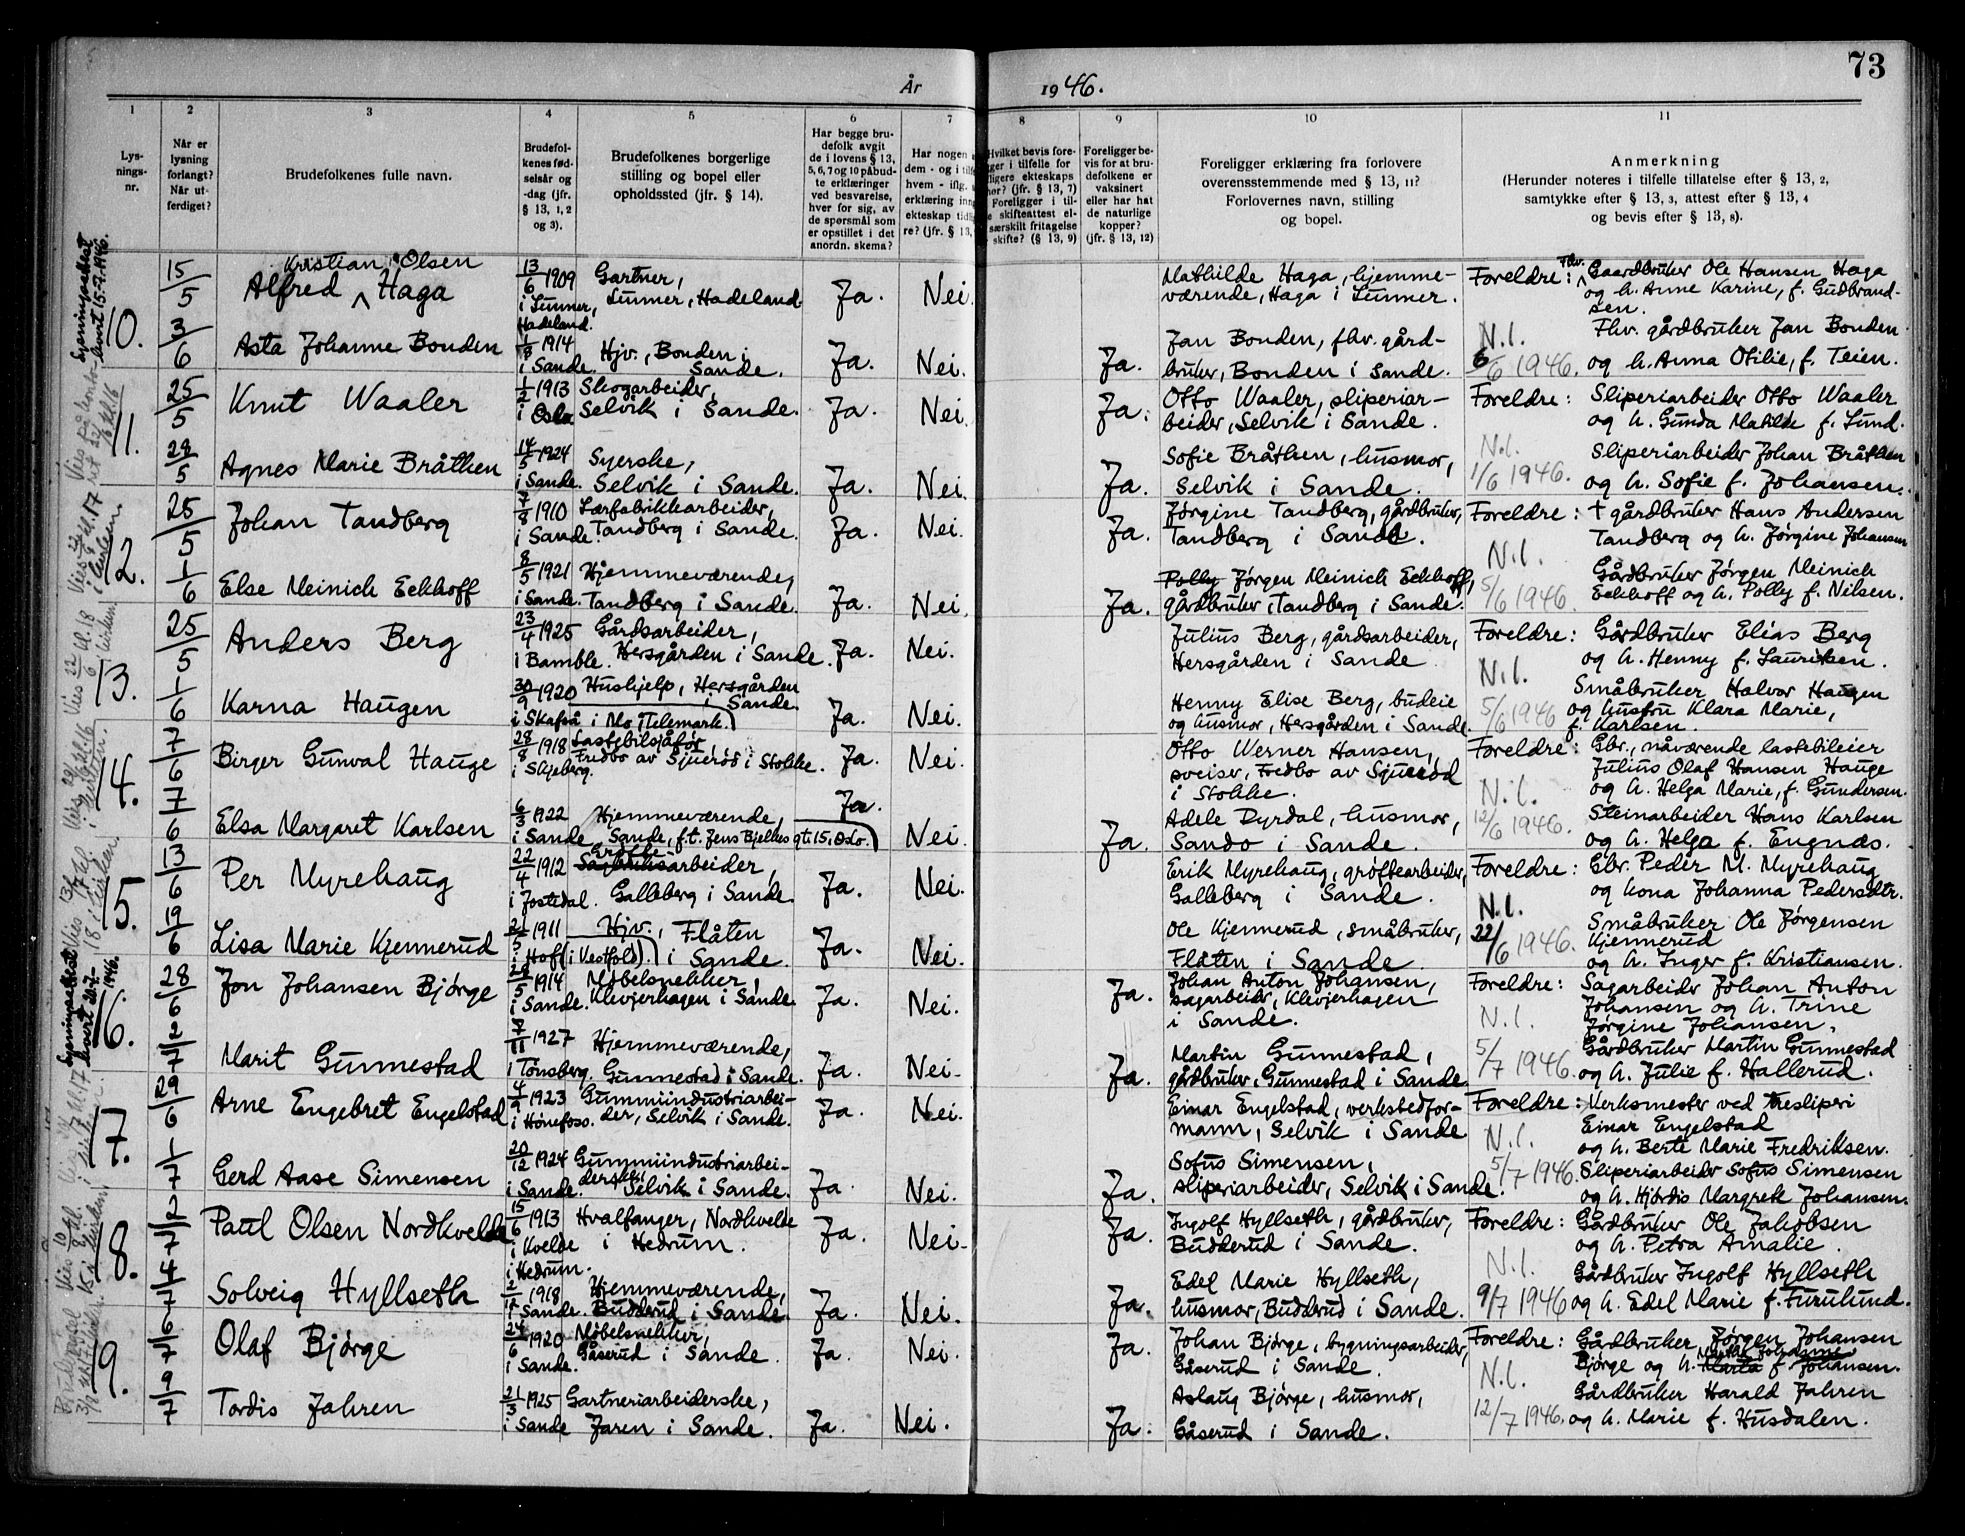 73
År 1946.
1 2 3 4 5 6 7 8 9 10 11
Lys-
nings-
nr.
Når er
lysning
forlangt?
Når ut-
ferdiget?
Brudefolkenes fulle navn.
Brudefol-
kenes fød-
selsår og
-dag (jfr.
§ 13, 1, 2
og 3).
Brudefolkenes borgerlige
stilling og bopel eller
opholdssted (jfr. § 14).
Har begge bru-
defolk avgit
de i lovens § 13,
5, 6, 7 og 10 påbud-
te erklæringer
ved besvarelse,
hver for sig, av
de spørsmål som
er opstillet i det
anordn. skema?
Har nogen
dem - og i
hvem - iflg.
erklæring
ekteskap
re? (jfr. § 13,
Hvilket bevis fore-
ger i tilfelle for
ligere ekteskaps
hør? (jfr. § 13, 7)
Foreligger i til-
e skifteattest el-
særskilt fritagelse
skifte? (§ 13, 9)
Foreligger be-
vis for at bru-
defolkene er
vaksinert
eller har hat
de naturlige
kopper?
(jfr. § 13, 12)
Foreligger erklæring fra forlovere
overensstemmende med § 13, 11?
Forlovernes navn, stilling
og bopel.
Anmerkning
(Herunder noteres i tilfelle tillatelse efter § 13, 2,
samtykke efter § 13, 3, attest efter § 13, 4
og bevis efter § 13, 8).
Lysningsattest
levert 15.7.1946.
10.
15/5
Kristian Olsen
Alfred ^ Haga
13/6 1909
i Lunner,
Hadeland.
Gartner,
Lunner, Hadeland
Ja. Nei.
Mathilde Haga, hjemme-
værende, Haga i Lunner.
Foreldre: Fhv. Gaardbruker Ole Hansen Haga
og h. Anne Karine, f. Gudbrand-
sen.
3/6
Asta Johanne Bonden
1/8 1914
i Sande.
Hjv., Bonden i
Sande.
Ja. Nei. Ja.
Jan Bonden, fhv. gård-
bruker, Bonden i Sande.
N.l.
6/6 1946.
Fhv. gårdbruker Jan Bonden
og h. Anna Otilie, f. Teien.
11.
25/5
Knut Waaler
1/2 1913
i Oslo
Skogarbeider,
Selvik i Sande.
Ja. Nei. Ja.
Otto Waaler, sliperiar-
beider, Selvik i Sande.
Foreldre: Sliperiarbeider Otto Waaler
og h. Gunda Matilde f. Lund.
28/5
Agnes Marie Bråthen
14/5 1924
i Sande.
Syerske,
Selvik i Sande.
Ja. Nei. Ja.
Sofie Bråthen, husmor,
Selvik i Sande.
N.l.
1/6 1946.
Sliperiarbeider Johan Bråthen
og h. Sofie f. Johansen.
12.
25/5
Johan Tandberg
7/8 1910
i Sande.
Lærfabrikkarbeider,
Tandberg i Sande.
Ja. Nei. Ja.
Jørgine Tandberg, gårdbruker,
Tandberg i Sande.
Foreldre: † gårdbruker Hans Andersen
Tandberg og h. Jørgine Johansen
1/6
Else Meinich Eckhoff
8/5 1921
i Sande.
Hjemmeværende,
Tandberg i Sande.
Ja. Nei. Ja.
Polly Jørgen Meinich Eckhoff,
gårdbruker, Tandberg i Sande.
N.l.
5/6 1946.
Gårdbruker Jørgen Meinich
Eckhoff og h. Polly f. Nilsen.
13.
25/5
Anders Berg
23/4 1925
i Bamble.
Gårdsarbeider,
Hersgården i Sande.
Ja. Nei.
Julius Berg, gårdsarbeider,
Hersgården i Sande
Foreldre: Gårdbruker Elias Berg
og h. Henny f. Lauritsen.
1/6
Karna Haugen
30/9 1920
i Skafså i Mo i Telemark.
Hushjelp, Hersgården
i Sande
Ja. Nei.
Henny Elise Berg, budeie
og husmor, Hersgården i Sande
N.l.
5/6 1946
Småbruker Halvor Haugen
og hustru Klara Marie,
f. Karlsen.
14.
7/6
Birger Gunval Hauge
28/8 1918
i Skjeberg.
Lastebilsjåfør,
Fredbo av Sjuerød i Stokke.
Ja. Nei.
Otto Werner Hansen,
sveiser, Fredbo av Sjuerød
i Stokke.
Foreldre: Gbr., nåværende lastebileier
Julius Olaf Hansen Hauge
og h. Helga Marie, f. Gundersen.
7/6
Elsa Margaret Karlsen
6/3 1922
i Sande
Hjemmeværende,
Sande, f.t. Jens Bjelkes gt. 15, Oslo.
Ja. Nei. Ja.
Adele Dyrdal, husmor,
Sando i Sande.
N.l.
12/6 1946.
Steinarbeider Hans Karlsen
og h. Helga f. Engnæs.
15.
13/6
Per Myrehaug
22/4 1912
i Jostedal.
Grøfte-
arbeider,
Galleberg i Sande.
Ja. Nei.
Erik Myrehaug, grøftearbeider,
Galleberg i Sande.
Foreldre: Gbr. Peder M. Myrehaug
og kona Johanna Pedersdtr.
19/6
Lisa Marie Kjennerud
21/5 1911
i Hof (i Vestfold).
Hjv., Flåten
i Sande.
Ja. Nei.
Ole Kjennerud, småbruker,
Flåten i Sande.
N.l.
22/6 1946.
Småbruker Ole Jørgensen
Kjennerud
og h. Inger f. Kristiansen.
Lysningsattest
levert 20.7.-
1946.
16.
28/6
Jon Johansen Bjørge
1914
i Sande.
Møbelsnekker,
Klevjerhagen i Sande
Ja. Nei. Ja.
Johan Anton Johansen,
sagarbeider, Klevjerhagen
i Sande.
Foreldre: Sagarbeider Johan Anton
Johansen og h. Trine
Jørgine Johansen.
2/7
Marit Gunnestad
8/11 1927
i Tønsberg.
Hjemmeværende,
Gunnestad i Sande.
Ja. Nei. Ja.
Martin Gunnestad,
gårdbruker, Gunnestad i Sande
N.l.
5/7 1946.
Gårdbruker Martin Gunnestad
og h. Julie f. Hallerud.
17.
29/6
Arne Engebret Engelstad
4/9 1923
i Hønefoss.
Gummiindustriarbei-
der, Selvik i Sande.
Ja. Nei.
Einar Engelstad, verkstedfor-
mann, Selvik i Sande
Foreldre: Verksmester ved Tresliperi
Einar Engelstad
og h. Berte Marie Fredriksen.
1/7
Gerd Aase Simensen
20/12 1924
i Sande.
Gummiindustriarbei-
derske,
Selvik i Sande.
Ja. Nei. Ja.
Sofus Simensen,
sliperiarbeider, Selvik i Sande.
N.l.
5/7 1946.
Sliperiarbeider Sofus Simensen
og h. Hjørdis Margrete Johansen.
18.
2/7
Paul Olsen Nordkvelde
15/6 1913
i Kvelde
i Hedrum.
Hvalfanger, Nordkvelde
i Hedrum.
Ja. Nei. Ja.
Ingolf Hyllseth, gårdbruker,
Budderud i Sande.
Foreldre: Gårdbruker Ole Jakobsen
og h. Petra Amalie.
4/7
Solveig Hyllseth
2/12 1918
i Sande.
Hjemmeværende,
Budderud i Sande.
Ja. Nei. Ja.
Edel Marie Hyllseth,
husmor, Budderud i Sande.
N.l.
9/7 1946
Gårdbruker Ingolf Hyllseth
og h. Edel Marie f. Furulund.
19.
6/7
Olaf Bjørge
24/6 1920
i Sande.
Møbelsnekker,
Gåserud i Sande.
Ja. Nei. Ja.
Johan Bjørge, bygningsarbeider,
Gåserud i Sande.
Foreldre: Gårdbruker Jørgen Johansen
Bjørge og h. Marta Johanne f. Johansen.
9/7
Tordis Jahren
21/3 1925
i Sande
Gartneriarbeiderske,
Jaren i Sande.
Ja. Nei. Ja.
Aslaug Bjørge, husmor,
Gåserud i Sande.
N.l.
12/7 1946.
Gårdbruker Harald Jahren
og h. Marie f. Husdalen.